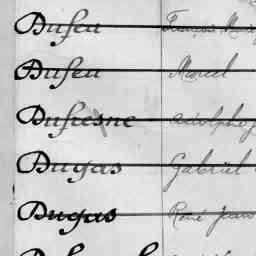 Dufeu François
Dufeu Marcel
Dufresne Adolphe
Dugas Gabriel
Dugas René Jean